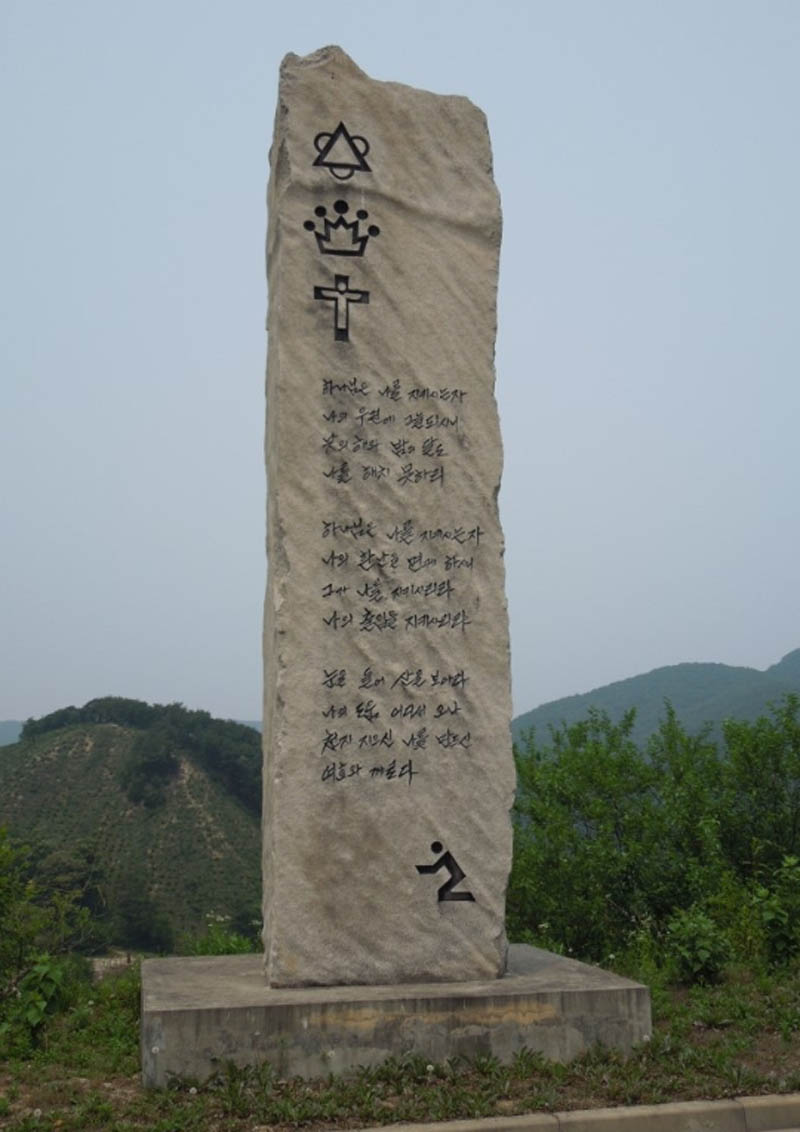 하나님은 나를 지키시는자
나의 우편에 그늘되시니
낮의 해와 밤의 달도
나를 해치 못하리
하나님은 나를 지키시는자
나의 환난을 면케 하시니
그가 나를 지키시리라
나의 출입을 지키시리라
눈을 들어 산을 보아라
나의 도움 어디서 오나
천지 지으신 나를 만드신
여호와 께로다